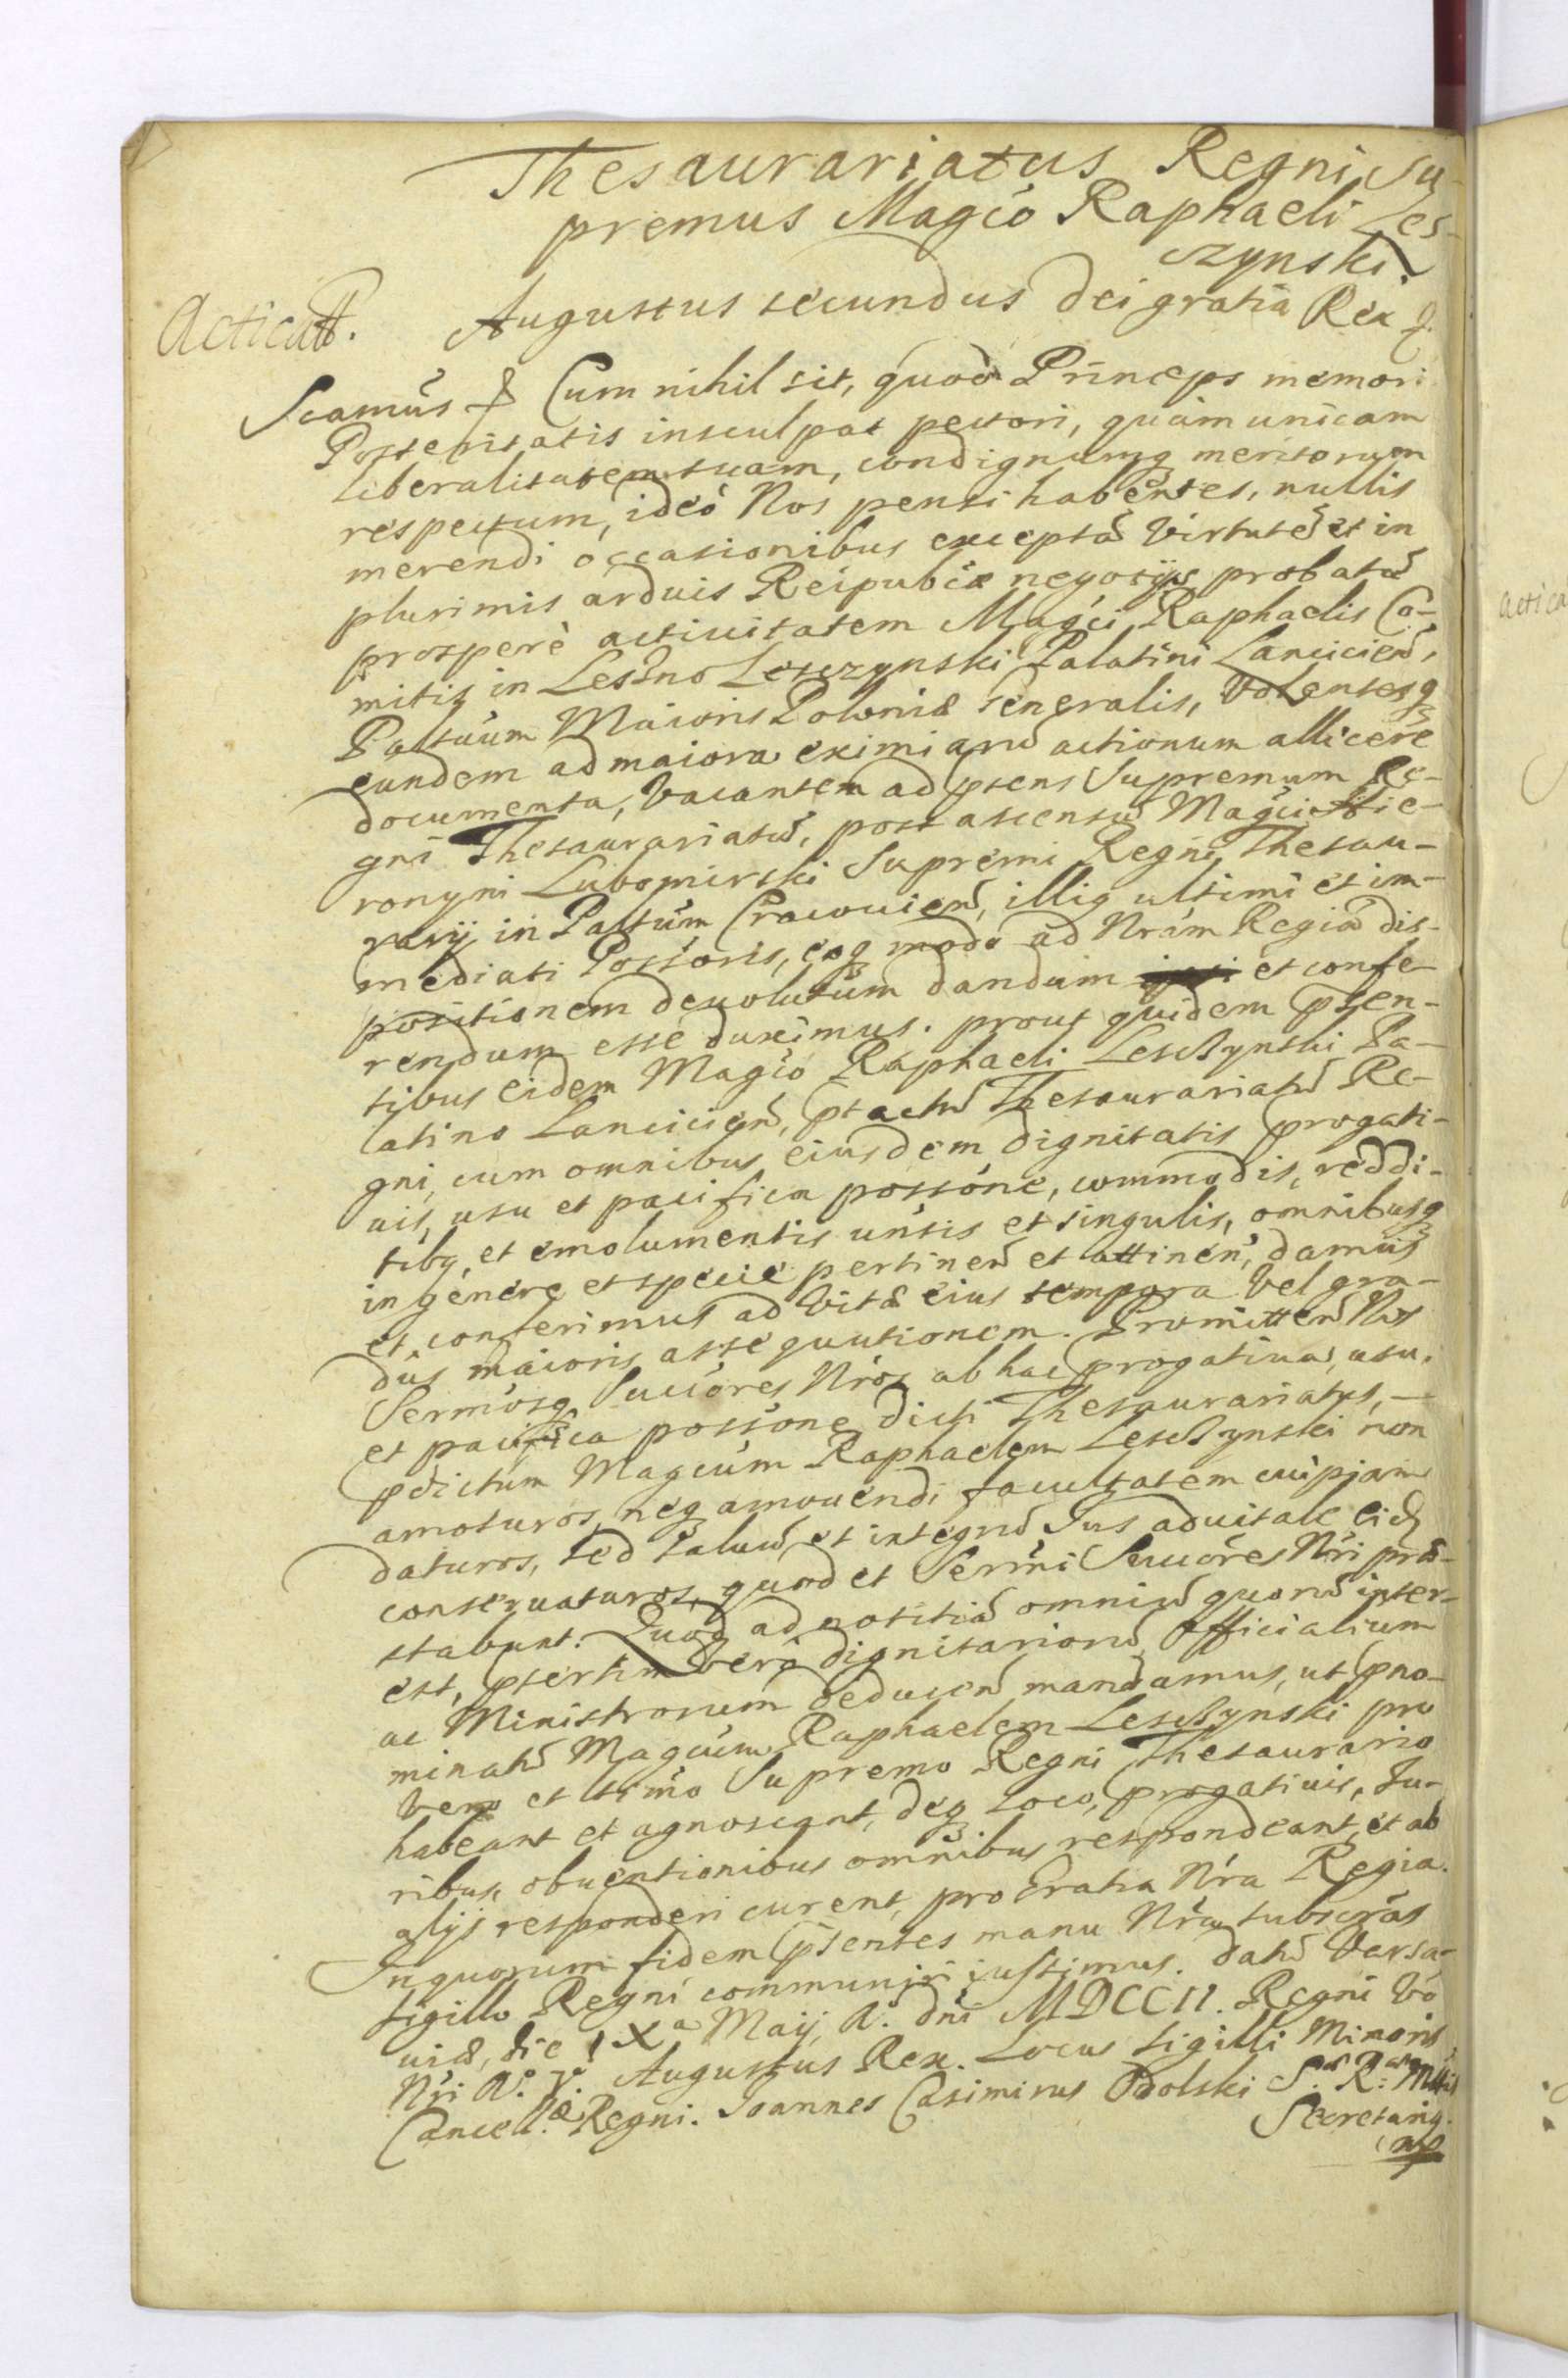 Thesaurariatus Regni Su-
premus Magcó Raphaeli Les-
czynski.
Acticatt.
Augustus secundus Dei gratia Rex &.
Scamus & Cum nihil sit, quod Princeps memori
Posteritatis insculpat pectori, quàm unicam
liberalitatem suam, condignumq meritorum
respectum, ideó Nos pensi habentes, nullis
merendi occasionibus exceptã Virtutẽ et in
plurimis arduis Reipublcæ negotijs probatã
prosperè actiuitatem Magci Raphaelis Co-
mitis in Leszno Lesczynski Palatini Lancicien̄,
Palttuum Maioris Poloniæ Generalis, Volentesq
eundem ad maiora eximiarũ actionum allicere
documenta, Vacantem ad psens Supremum Re-
gni Thesaurariatũ, post ascensũ Magci Hie-
ronymi Lubomirski Supremi Regni Thesau-
rarij in Palttum Cracouien̄, illig ultimi et im-
mediati Possoris, eoq modo ad Nrám Regiã dis-
positionem deuolutum dandum et confe-
rendum esse duximus. prout quidem psen-
tibus eidem Magcó Raphaeli Lesczynski Pa-
latino Lancicien̄, pfactũ Thesaurariatũ Re-
gni, cum omnibus eiusdem dignitatis progati-
uis, usu et pacifica possóne, commodis, reddi-
tibq, et emolumentis unsis et singulis, omnibusq
in genere et specie pertinen̄ et attinen̄, damus
et conferimus ad Vitæ eius tempora Vel gra-
dus maioris assequutionem. Promitten̄ Nos
Sermosq Succóres Nros ab hac progatiua, usu,
et pacifica possóne dicti Thesaurariatus,
pdictum Magcúm Raphaelem Lesczynski non
amoturos, neq amouendi facultatem cuipiam
daturos, sed saluũ et integrũ Jus aduitale eid
conseruaturos, quod et Sermi Succóres Nri præ-
stabunt. Quod ad notitiã omniũ quorũ inter-
est, psertim Verò dignitariorũ Officialium
ac Ministrorum deducen̄ mandamus, ut pno-
minatũ Magcúm Raphaelem Lesczynski pro
Vero et ltimo Supremo Regni Thesaurario
habeant et agnoscant, deq loco, progatiuis, Ju-
ribus, obuentionibus omnibus respondeant, et ab
alijs responderi curent, pro Gratia Nra Regia.
In quorum fidem psentes manu Nra subscrás
sigillo Regni communiri iussimus. Datũ Varsa-
uiæ, die IXa Maij, A. Dni MDCCII. Regni Vó
Nri A. V. Augustus Rex. Locus Sigilli Minoris
Cancell.æ Regni. Joannes Casimirus Odolski S. R. Mttis
Secretariq.
mp
actica